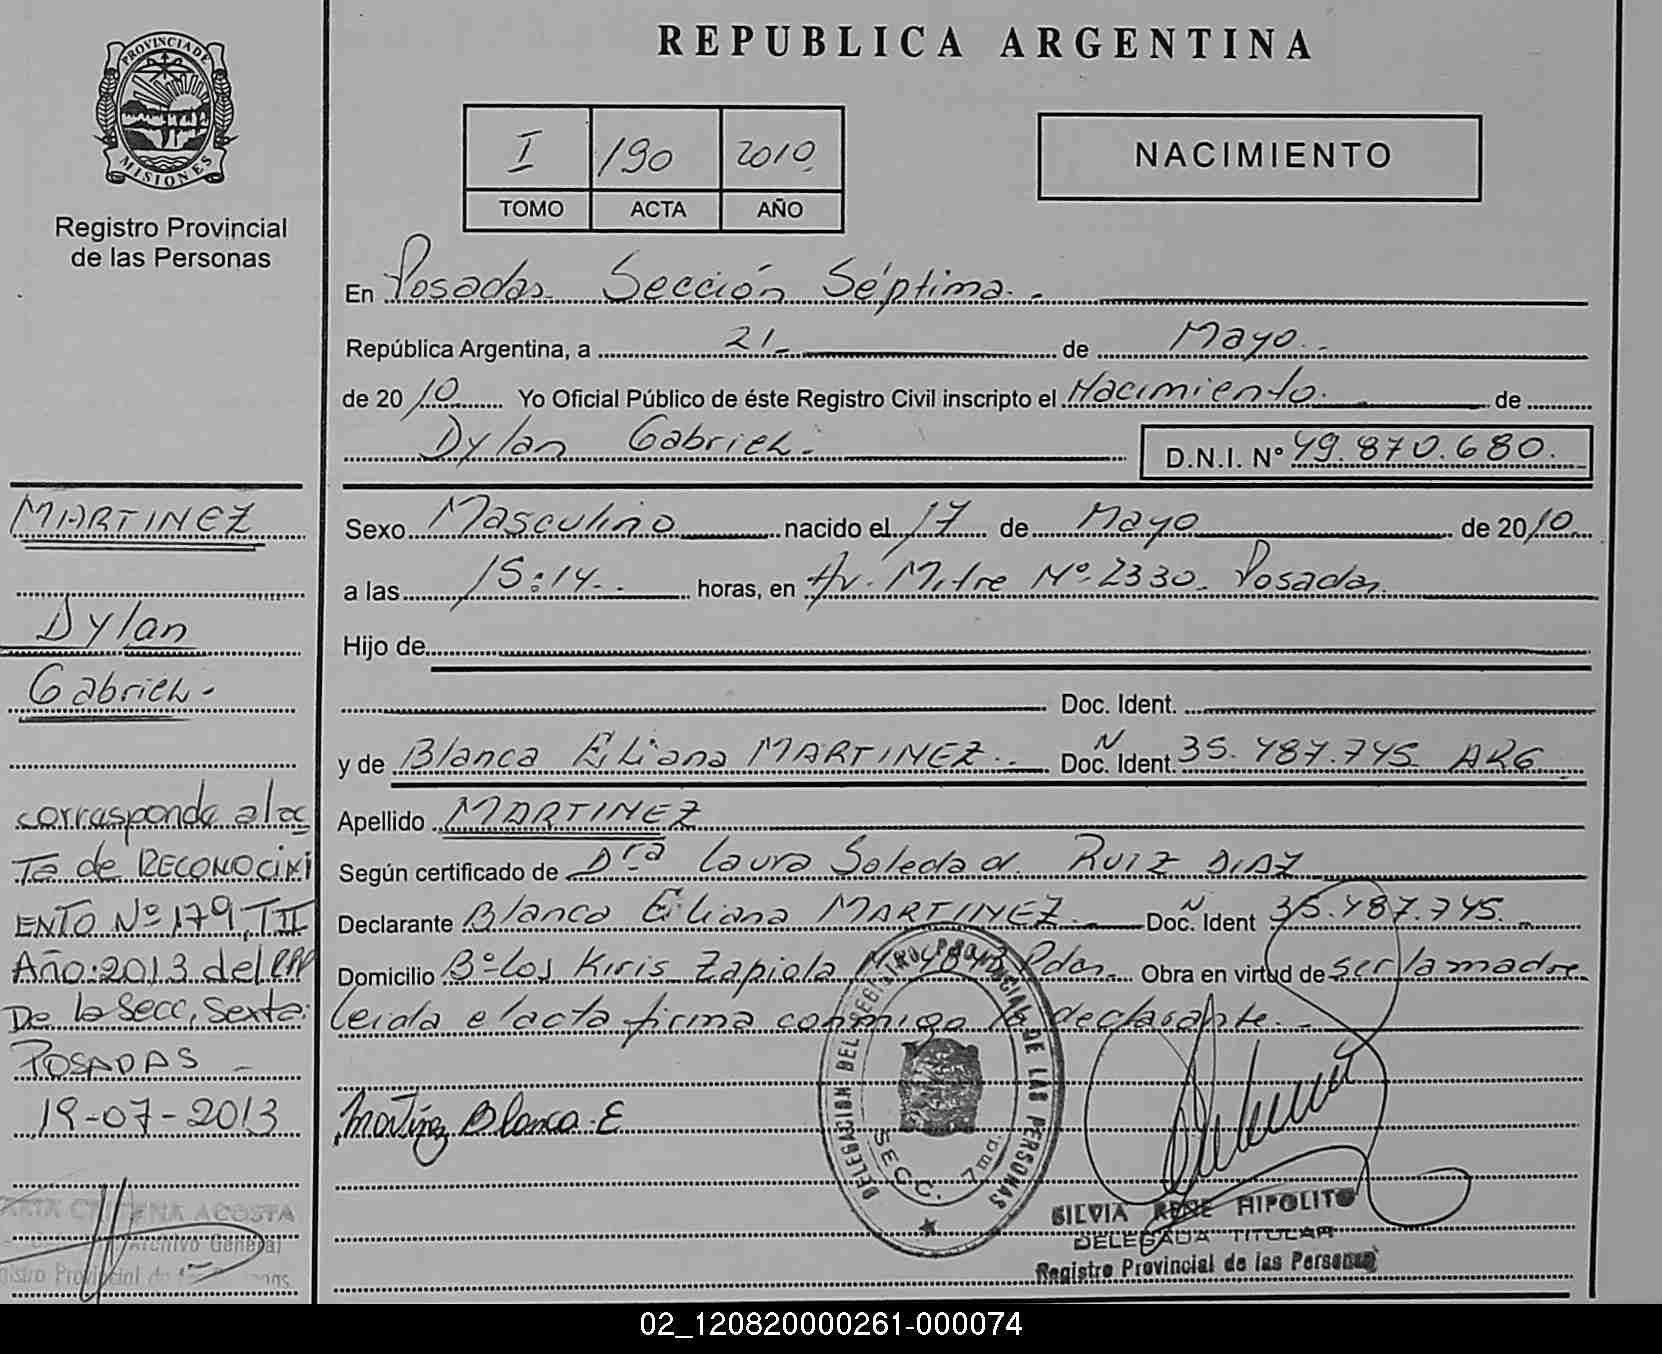 REPUBLICA ARGENTINA
PROVINCIA DE
MISIONES
Registro Provincial
de las Personas
I 190 2010
TOMO ACTA AÑO
NACIMIENTO
En Posadas Sección Séptima.
República Argentina, a 21 de Mayo
de 2010 Yo Oficial Público de éste Registro Civil inscripto el Nacimiento de
Dylan Gabriel. D.N.I. Nº 49.870.680.
Sexo Masculino nacido el 17 de Mayo de 2010
a las 15:14 horas, en Av. Mitre Nº 2330 Posadas
Hijo de
Doc. Ident.
y de Blanca Eliana MARTINEZ Doc. Ident. N 35.487.745 ARG
Apellido MARTINEZ
Según certificado de Dra Laura Soledad RUIZ DIAZ
Declarante Blanca Eliana MARTINEZ Doc. Ident N 35.487.745
Domicilio Bº Los Kiris Zapiola Pdas. Obra en virtud de ser la madre
leida el acta firma conmigo la declarante.
Martínez Blanca E
DELEGACION DEL REGISTRO PROVINCIAL DE LAS PERSONAS
SECC. 7ma.
SILVIA RENE HIPOLITO
DELEGADA TITULAR
Registro Provincial de las Personas
MARTINEZ
Dylan
Gabriel.
corresponde al ac
Ta de RECONOCIMI
ENTO Nº 179, T II
Año: 2013 del RPP
De la Secc, Sexta.
POSADAS
19-07-2013
ACOSTA
Archivo General
02_120820000261-000074